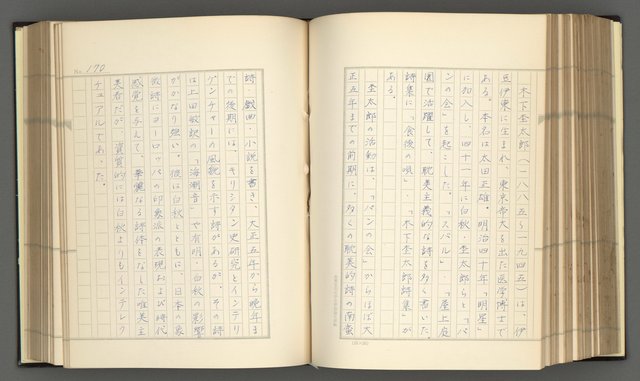 木下杢太郎(一八八五〜一九四五)は、伊
豆伊東に生まれ、東京帝大を出た医学博士で
ある。本名は太田正雄。明治四十年「明星」
に加入し、四十一年に白秋、杢太郎らと「パ
ンの会」を起こした。「スバル」、「屋上庭
園」で活躍して、耽美主義的な詩を多く書いた。
詩集に「食後の唄」、「木下杢太郎詩集」が
ある。
杢太郎の活動は、「パンの会」からほぼ大
正五年までの前期に、多くの耽美的詩の
No. 170
詩・戯曲・小説を書き、大正五年から晩年ま
での後期には、キリシタン史研究とインテリ
ゲンチャーの風貌を示す詩があるが、その詩
は上田敏訳の「海潮音」や有明、白秋の影響
がかなり強い。彼は白秋とともに、日本の象
徴詩にヨーロッパの印象派の表現および時代
感覚を与えて、華麗なる詩体をなした唯美主
義者だが、資質的には白秋よりもインテレク
チュアルであった。